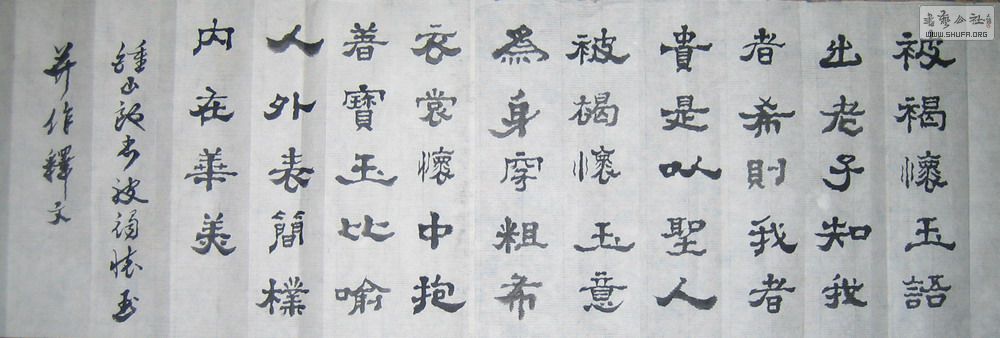 被褐懷玉語
出老子知我
者希則我者
貴是以聖人
被褐懷玉意
為身穿粗布
衣裳懷中抱
着寶玉比喻
人外表簡樸
内在華美
鍾山 被褐懷玉
并作釋文
書藝公社
WWW.SHUFA.ORG